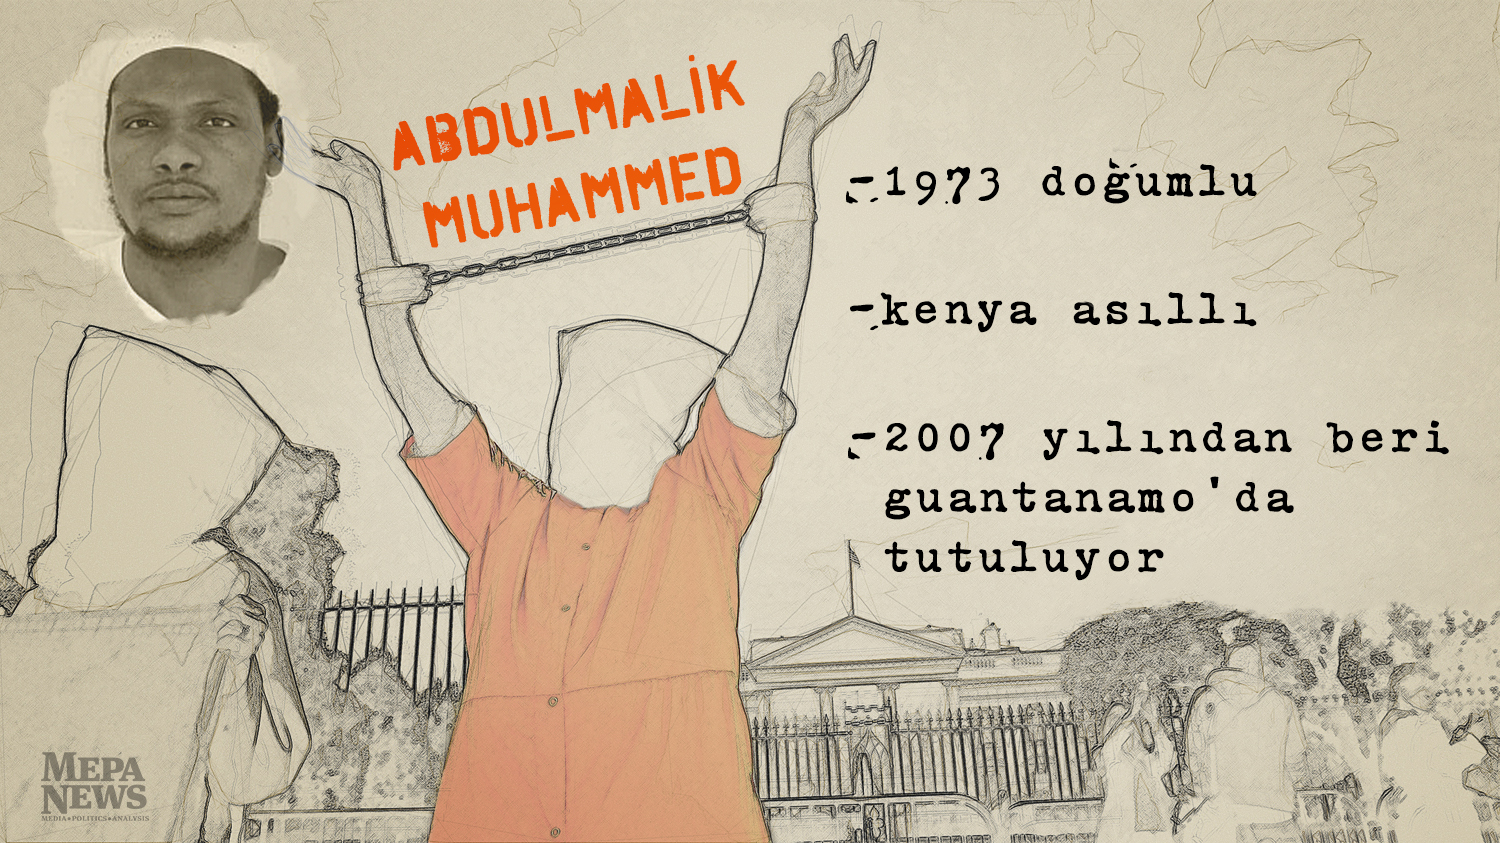 ABDULMALİK
MUHAMMED
-1973 doğumlu
-kenya asıllı
-2007 yılından beri
guantanamo'da
tutuluyor
MEPA
NEWS
MEDIA•POLITICS•ANALYSIS